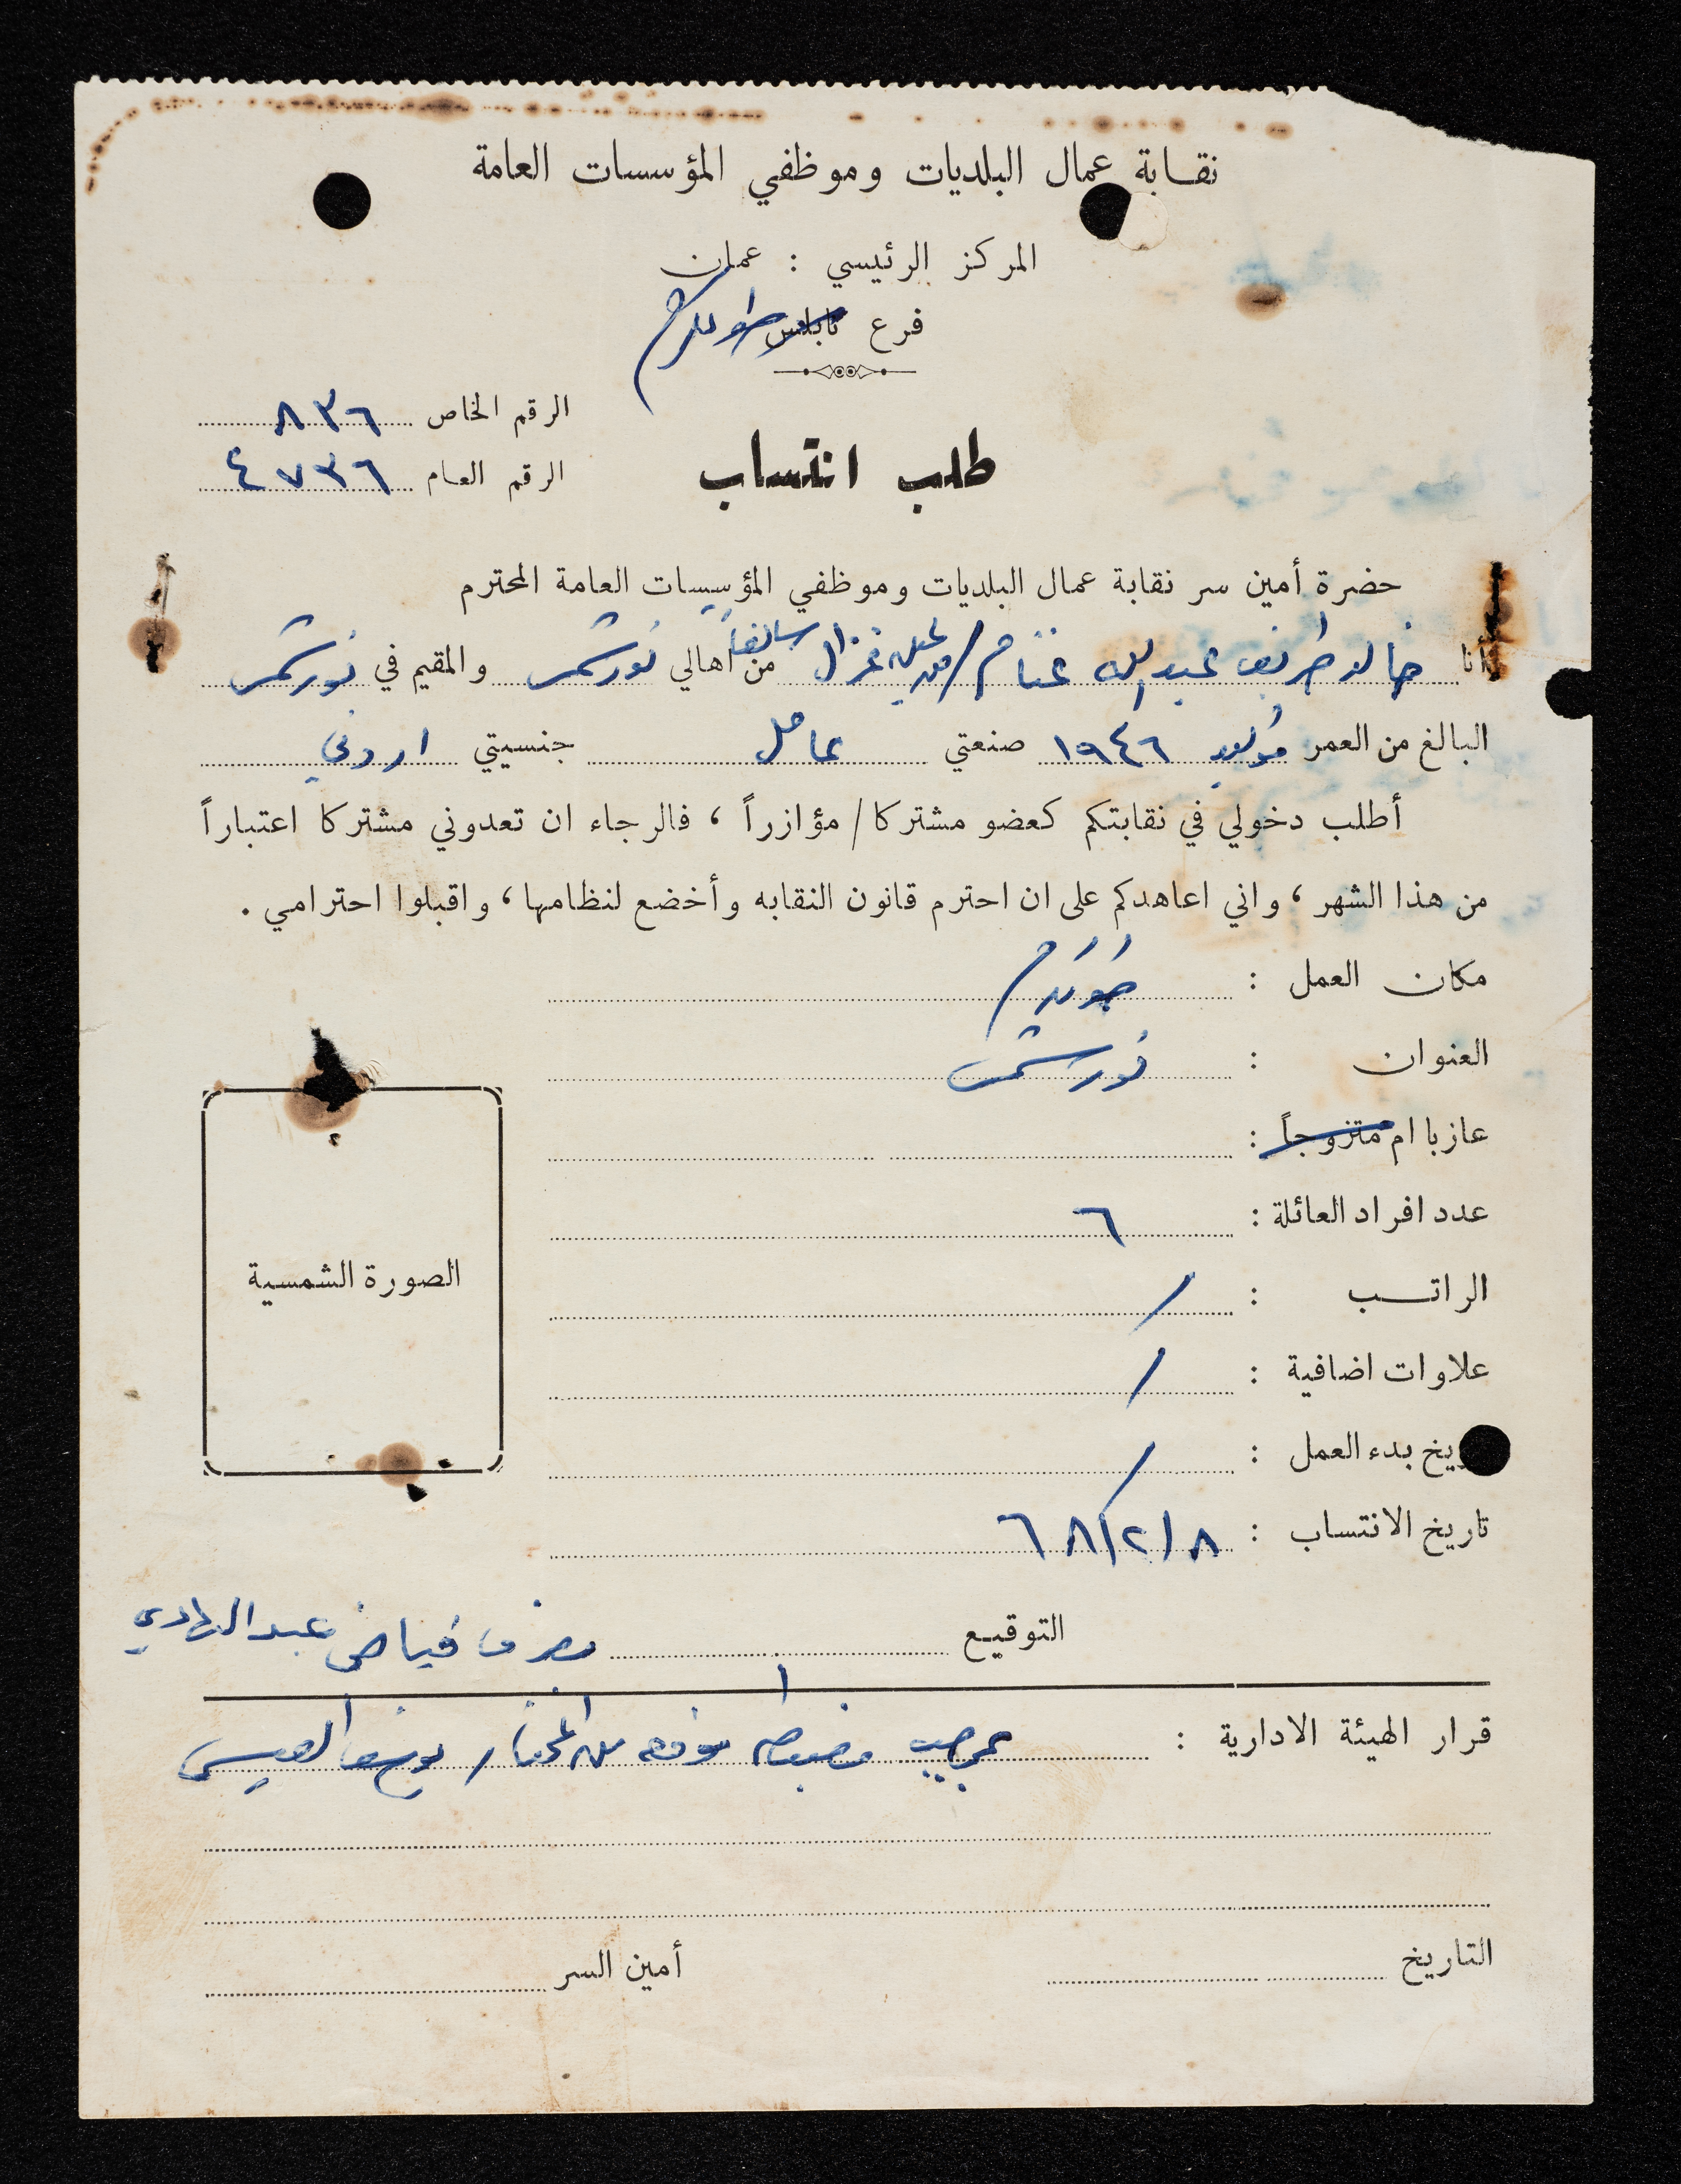 نقابة عمال البلديات وموظفي المؤسسات العامة
المركز الرئيسي : عمان
فرع نابلس طولكرم
الرقم الخاص ٨٣٦
الرقم العام ٤٧٣٦
طلب انتساب
حضرة أمين سر نقابة عمال البلديات وموظفي المؤسسات العامة المحترم
أنا خالد طريف عبدالله غنام / من غزال سالفاً من أهالي نورشمس والمقيم في نورشمس
البالغ من العمر مواليد ١٩٤٦ صنعتي عامل جنسيتي اردني
أطلب دخولي في نقابتكم كعضو مشتركا / مؤازراً ، فالرجاء ان تعدوني مشتركا اعتباراً
من هذا الشهر ، واني اعاهدكم على ان احترم قانون النقابه وأخضع لنظامها ، واقبلوا احترامي .
مكان العمل : طولكرم
العنوان : نورشمس
عازبا ام متزوجاً :
عدد افراد العائلة : ٦
الراتب : /
علاوات اضافية : /
الصورة الشمسية
يخ بدء العمل : /
تاريخ الانتساب : ٦٨/٢/٨
التوقيع فياض عبدالهادي
قرار الهيئة الادارية : بموجب مضبطة موقعه من المختار يوسف العيسى
التاريخ
أمين السر